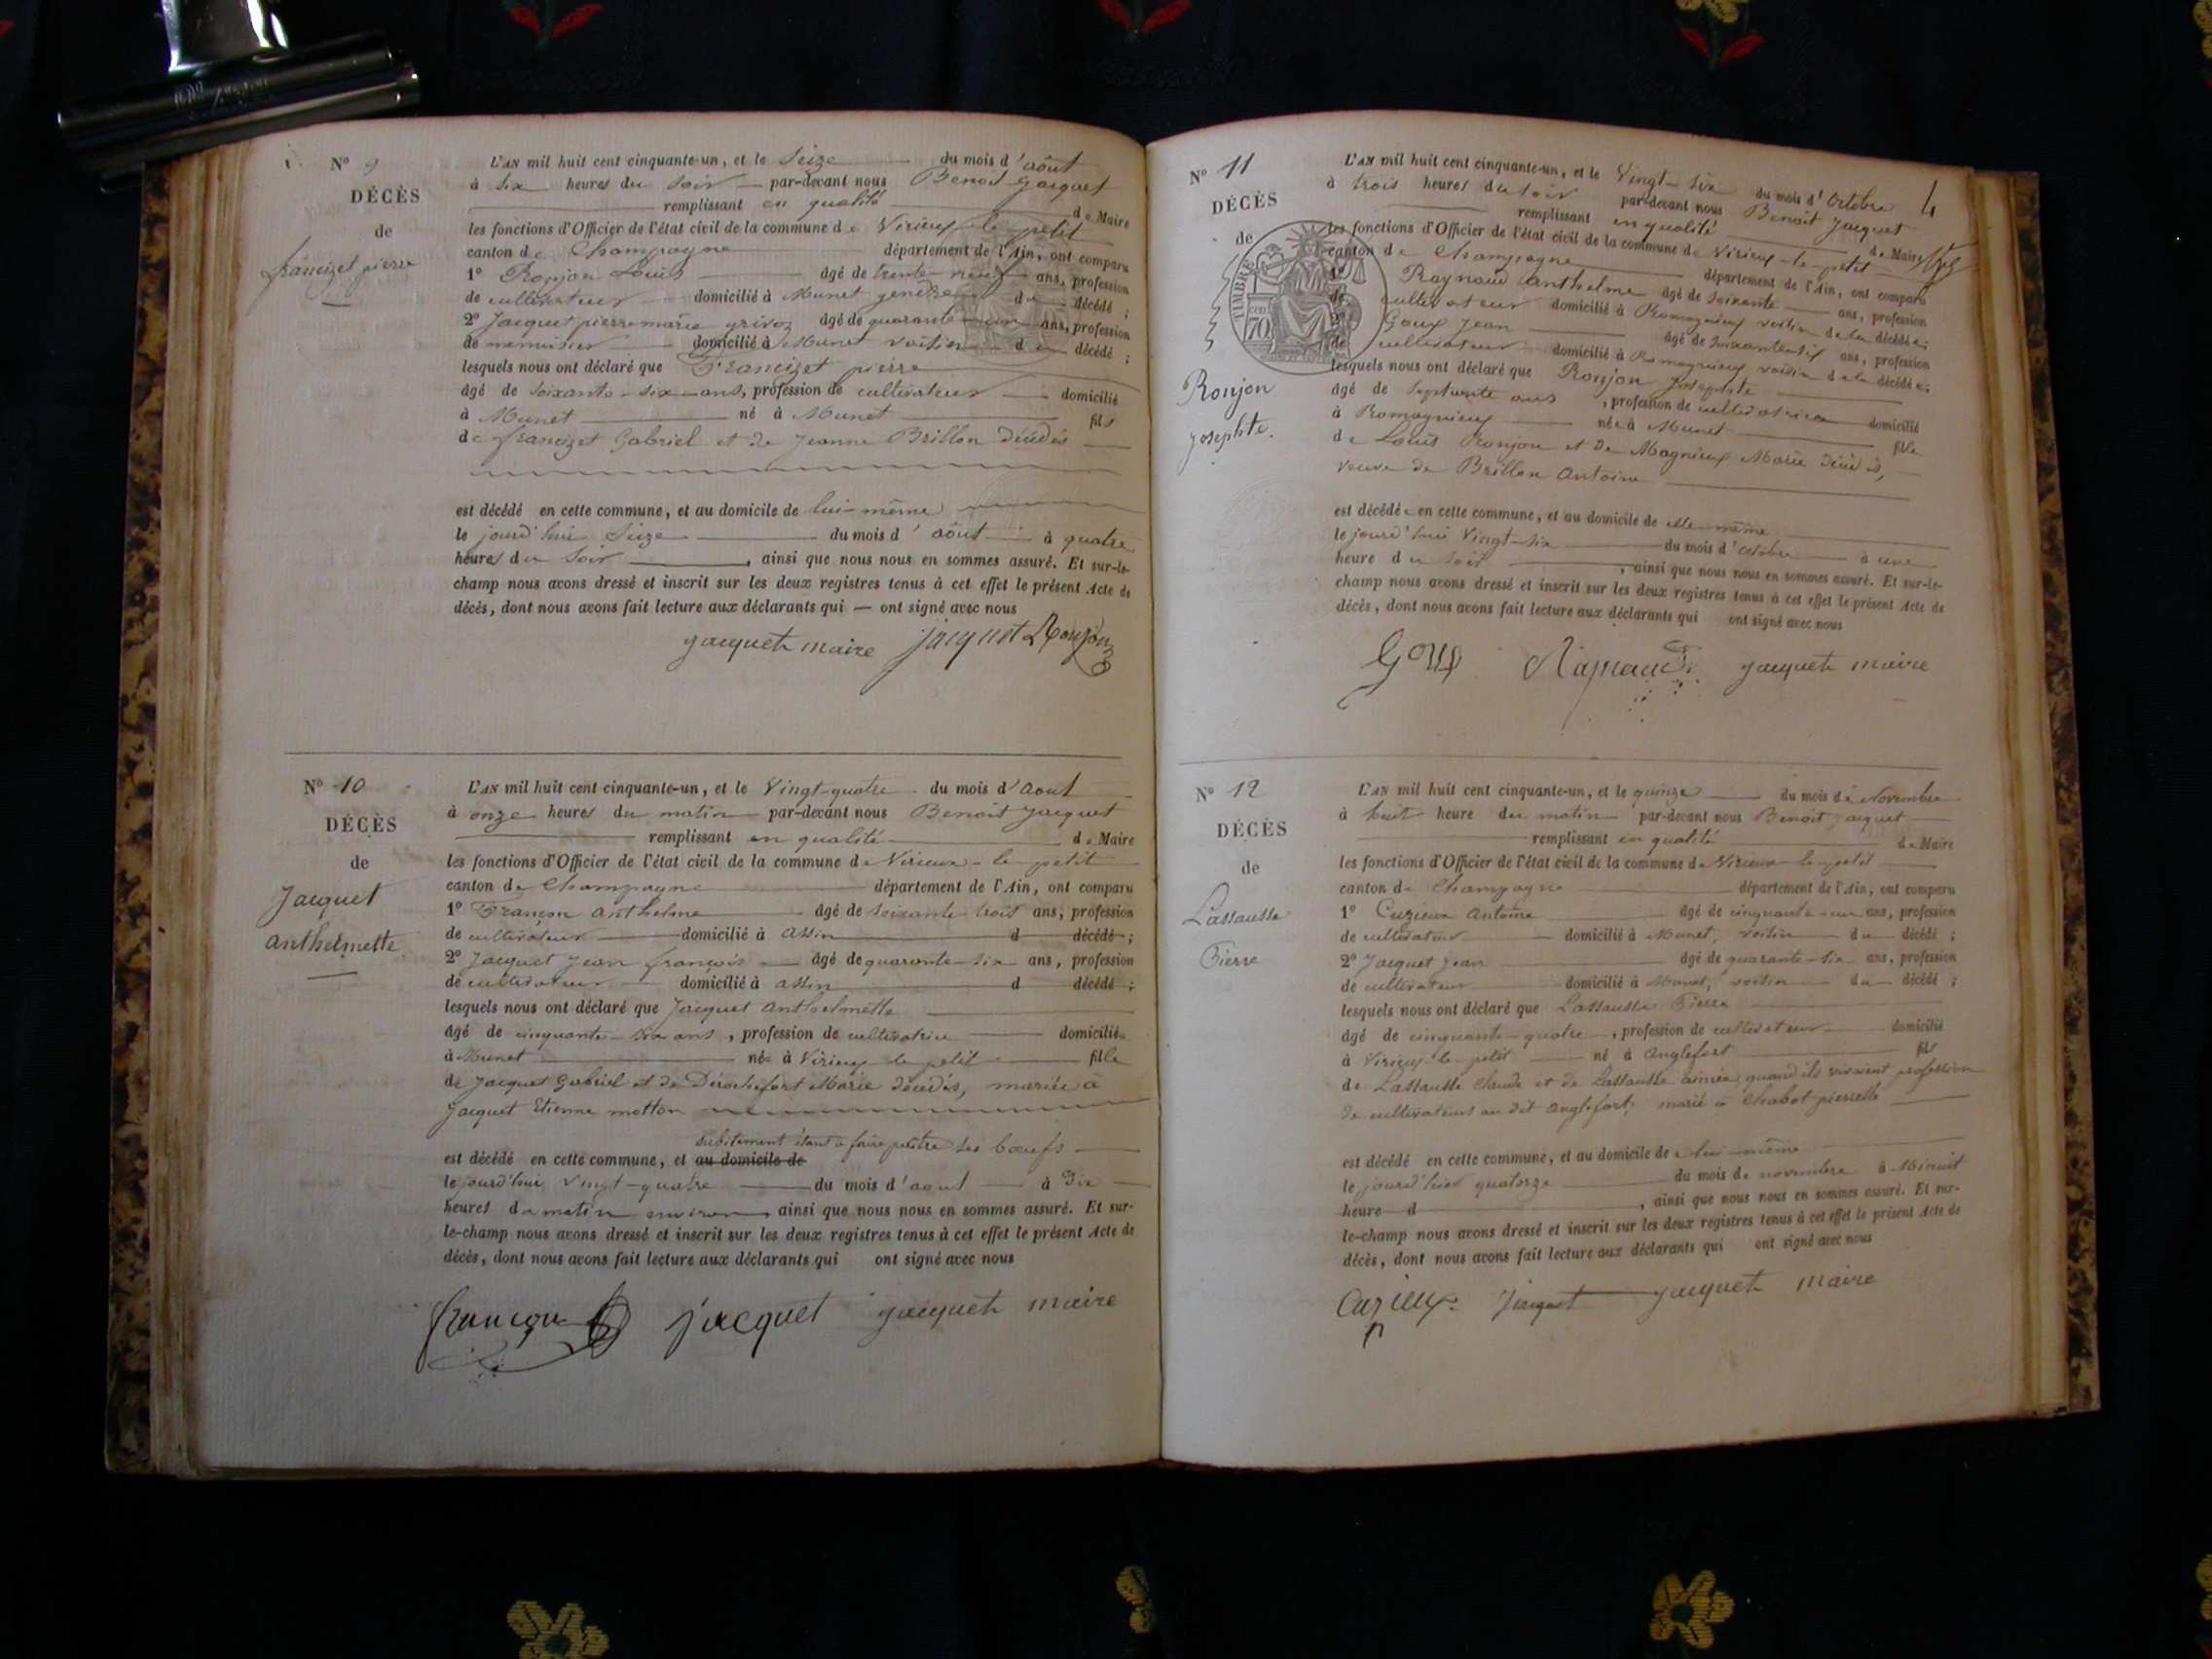 N° 9
DÉCÈS
de
francizet pierre
L'AN mil huit cent cinquante-un, et le Seize du mois d'août
à six heures du soir par-devant nous Benoit Jacquet
remplissant en qualité de Maire
les fonctions d'Officier de l'état civil de la commune de Virieu-le-petit
canton de Champagne département de l'Ain, ont comparu
1° Ronjon Louis âgé de trente-neuf ans, profession
de cultivateur domicilié à Munet gendre du décédé ;
2° Jacquet pierre marie grivoz âgé de quarante-un ans, profession
de menuisier domicilié à Munet voisin du décédé ;
lesquels nous ont déclaré que Francizet pierre
âgé de soixante-six ans, profession de cultivateur domicilié
à Munet né à Munet fils
de francizet Gabriel et de Jeanne Brillon décédés
est décédé en cette commune, et au domicile de lui-même
le jourd'hui Seize du mois d'août à quatre
heures du soir, ainsi que nous nous en sommes assuré. Et sur-le-
champ nous avons dressé et inscrit sur les deux registres tenus à cet effet le présent Acte de
décès, dont nous avons fait lecture aux déclarants qui — ont signé avec nous
jacquet maire jacquet Ronjon
N° 10
DÉCÈS
de
Jacquet
anthelmette
L'AN mil huit cent cinquante-un, et le Vingt-quatre du mois d'aout
à onze heures du matin par-devant nous Benoit Jacquet
remplissant en qualité de Maire
les fonctions d'Officier de l'état civil de la commune de Virieux-le-petit
canton de Champagne département de l'Ain, ont comparu
1° Françon anthelme âgé de soixante-trois ans, profession
de cultivateur domicilié à assin d décédé ;
2° Jacquet Jean françois âgé de quarante-six ans, profession
de cultivateur domicilié à assin d décédé ;
lesquels nous ont déclaré que Jacquet Anthelmette
âgé de cinquante-six ans, profession de cultivatrice domiciliée
à Munet née à Virieu-le-petit fille
de Jacquet Gabriel et de Derochefort Marie décédés, mariée à
Jacquet Etienne motton
subitement étant à faire paître ses bœufs
est décédé en cette commune, et au domicile de
le jourd'hui vingt-quatre du mois d'aout à Dix
heures du matin environ, ainsi que nous nous en sommes assuré. Et sur-
le-champ nous avons dressé et inscrit sur les deux registres tenus à cet effet le présent Acte de
décès, dont nous avons fait lecture aux déclarants qui ont signé avec nous
françon jacquet jacquet maire
N° 11
4
DÉCÈS
de
Ronjon
Josephte.
TIMBRE
70
L'AN mil huit cent cinquante-un, et le Vingt-six du mois d'Octobre
à trois heures du soir par-devant nous Benoit Jacquet
remplissant en qualité de Maire
les fonctions d'Officier de l'état civil de la commune de Virieu-le-petit
canton de Champagne département de l'Ain, ont comparu
1° Raynaud anthelme âgé de soixante ans, profession
de cultivateur domicilié à Romagnieu voisin de la décédée ;
2° Goux Jean âgé de soixante-six ans, profession
de cultivateur domicilié à Romagnieu voisin de la décédée ;
lesquels nous ont déclaré que Ronjon Josephte
âgé de septante ans, profession de cultivatrice domicilié
à Romagnieu née à Munet fille
de Louis Ronjon et de Magnieux Marie décédés,
veuve de Brillon Antoine
est décédée en cette commune, et au domicile de elle-même
le jourd'hui Vingt-six du mois d'octobre à une
heure du soir, ainsi que nous nous en sommes assuré. Et sur-le-
champ nous avons dressé et inscrit sur les deux registres tenus à cet effet le présent Acte de
décès, dont nous avons fait lecture aux déclarants qui ont signé avec nous
Goux Raynaud jacquet maire
N° 12
DÉCÈS
de
Lassausse
Pierre
L'AN mil huit cent cinquante-un, et le quinze du mois de Novembre
à huit heure du matin par-devant nous Benoit Jacquet
remplissant en qualité de Maire
les fonctions d'Officier de l'état civil de la commune de Virieux-le-petit
canton de Champagne département de l'Ain, ont comparu
1° Cuzieux Antoine âgé de cinquante-un ans, profession
de cultivateur domicilié à Munet, voisin du décédé ;
2° Jacquet Jean âgé de quarante-six ans, profession
de cultivateur domicilié à Munet, voisin du décédé ;
lesquels nous ont déclaré que Lassausse Pierre
âgé de cinquante-quatre, profession de cultivateur domicilié
à Virieu-le-petit né à Anglefort fils
de Lassausse Claude et de Lassausse aimée, quand ils vivaient profession
de cultivateurs au dit anglefort. marié à Chabot pierrette
est décédé en cette commune, et au domicile de lui-même
le jourd'hier quatorze du mois de novembre à Minuit
heure d, ainsi que nous nous en sommes assuré. Et sur-
le-champ nous avons dressé et inscrit sur les deux registres tenus à cet effet le présent Acte de
décès, dont nous avons fait lecture aux déclarants qui ont signé avec nous
Cuzieux Jacquet jacquet maire